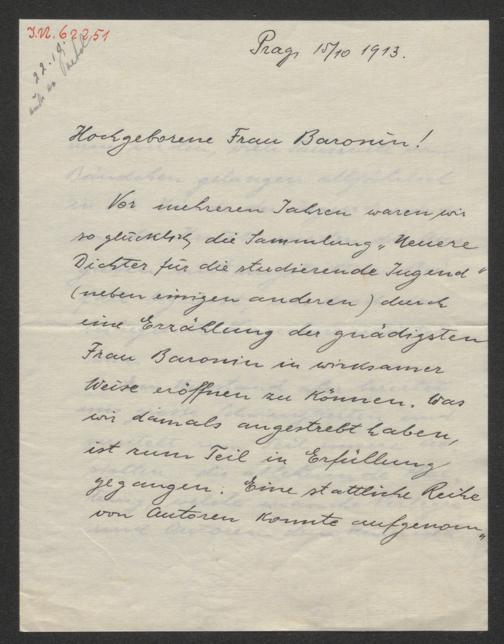 I.N. 62251
22.19.
Prag, 15/10 1913.
Hochgeborene Frau Baronin!
Vor mehreren Jahren waren wir
so glücklich, die Sammlung „Neuere
Dichter für die studierende Jugend"
(neben einigen anderen) durch
eine Erzählung der gnädigsten
Frau Baronin in wirksamer
Weise eröffnen zu können. Was
wir damals angestrebt haben,
ist zum Teil in Erfüllung
gegangen. Eine stattliche Reihe
von Autoren konnte aufgenom„